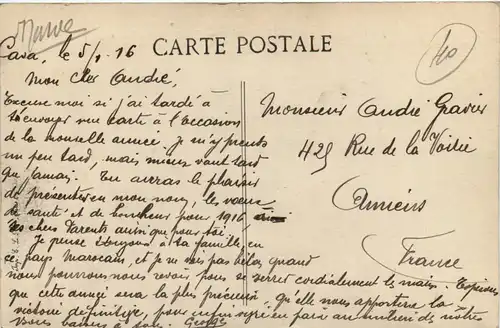 Maroc
40
Casa, le 5/1. 16
CARTE POSTALE
Mon cher André,
Excuse moi si j'ai tardé à
t'envoyer une carte à l'occasion
de la nouvelle année. Je m'y prends
un peu tard, mais mieux vaut tard
que jamais. Tu auras le plaisir
de présenter en mon nom, les vœux
de santé et de bonheur pour 1916,
tes chers Parents ainsi que pour toi.
Je pense toujours à ta famille, en
ce pays Marocain, et je ne sais hélas, quand
nous pourrons nous revoir, pour se serrer cordialement la main. Espérons
que cette année sera la plus précieuse, qu'elle nous apportera la
victoire définitive, pour enfin en faire au milieu de notre
Georges
Monsieur André Gravier
425 Rue de la Voirie
Amiens
France